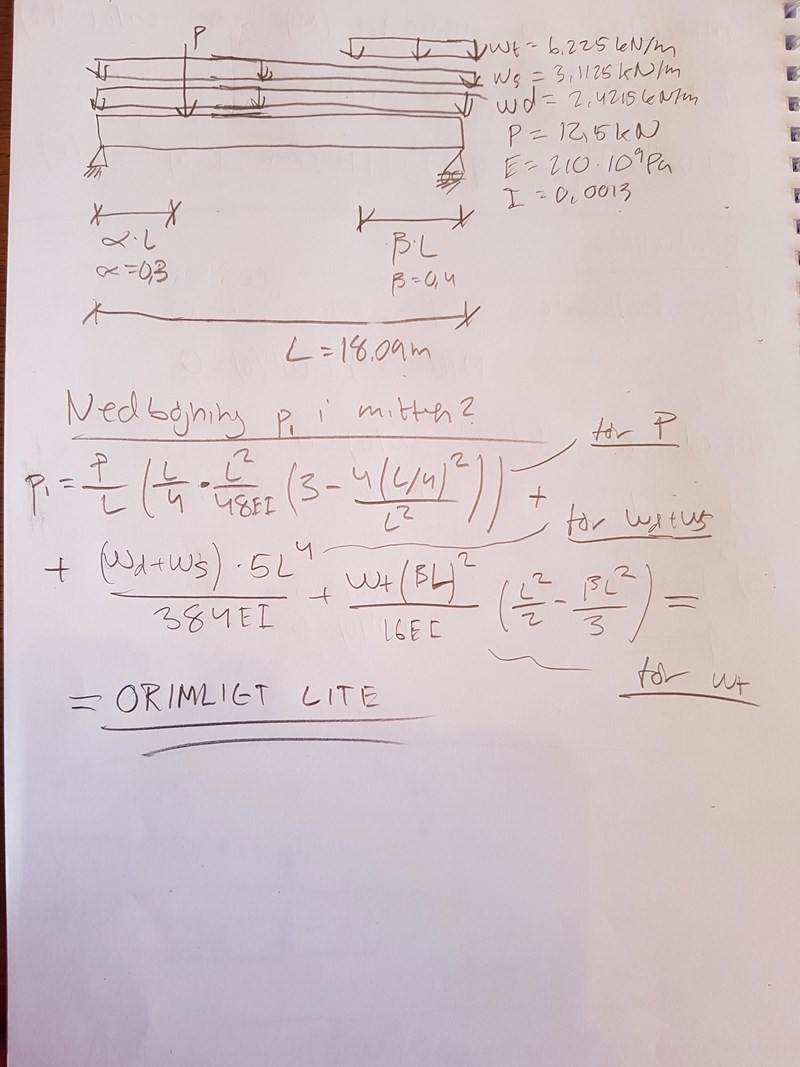 P
wt = 6,225 kN/m
ws = 3,1125 kN/m
wd = 2,4215 kN/m
P = 12,5 kN
E = 210 · 10⁹ Pa
I = 0,0013
α · L
α = 0,3
β · L
β = 0,4
L = 18.09 m
Nedböjning p₁ i mitten?
för P
p₁ = P/L (L/4 · L²/48EI (3 - 4(L/4)²/L²)) +
för wd+ws
+ (wd+ws) · 5L⁴/384EI + wt(βL)²/16EI (L²/2 - βL²/3) =
för wt
= ORIMLIGT LITE